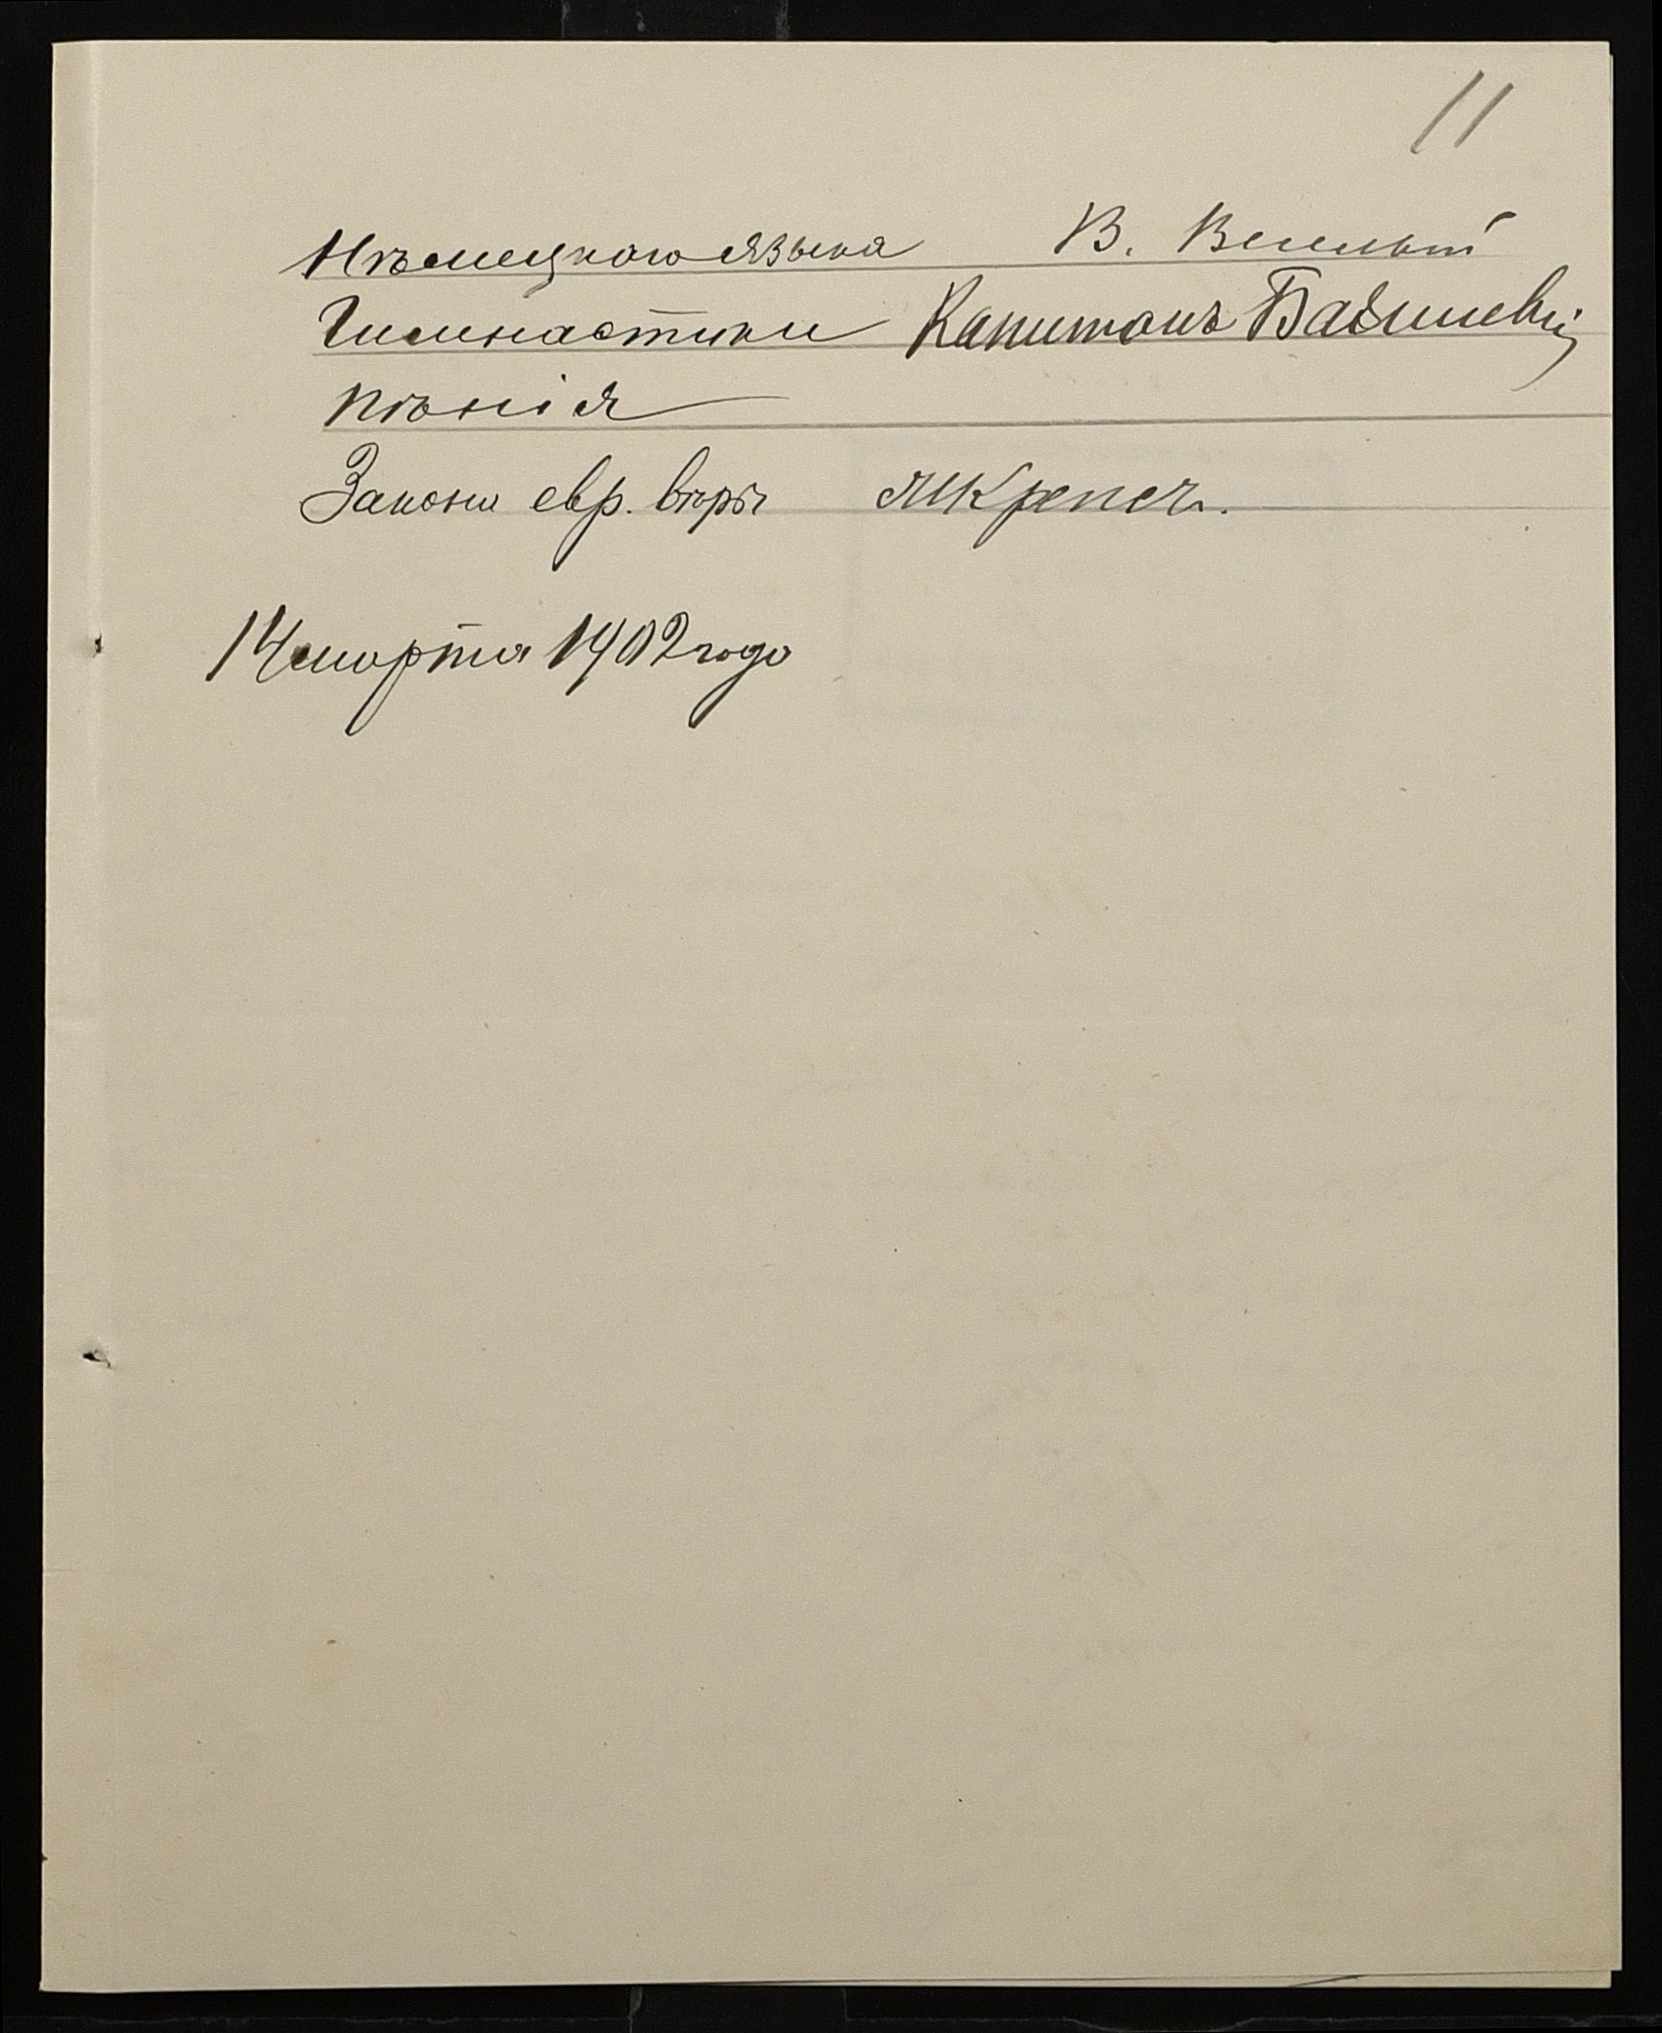 11
Нѣмецкаго языка В.
Гимнастики Капитанъ
Пѣнія
Закона евр. вѣры
14 марта 1902 года